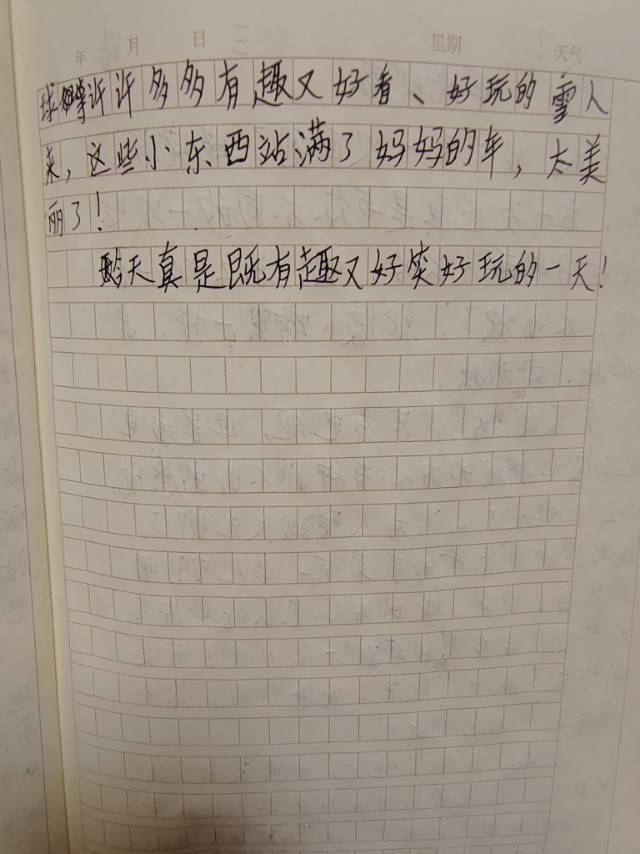 年 月 日 星期 天气
球等许许多多有趣又好看、好玩的雪人
来,这些小东西站满了妈妈的车,太美
丽了!
天真是既有趣又好笑好玩的一天!
100
200